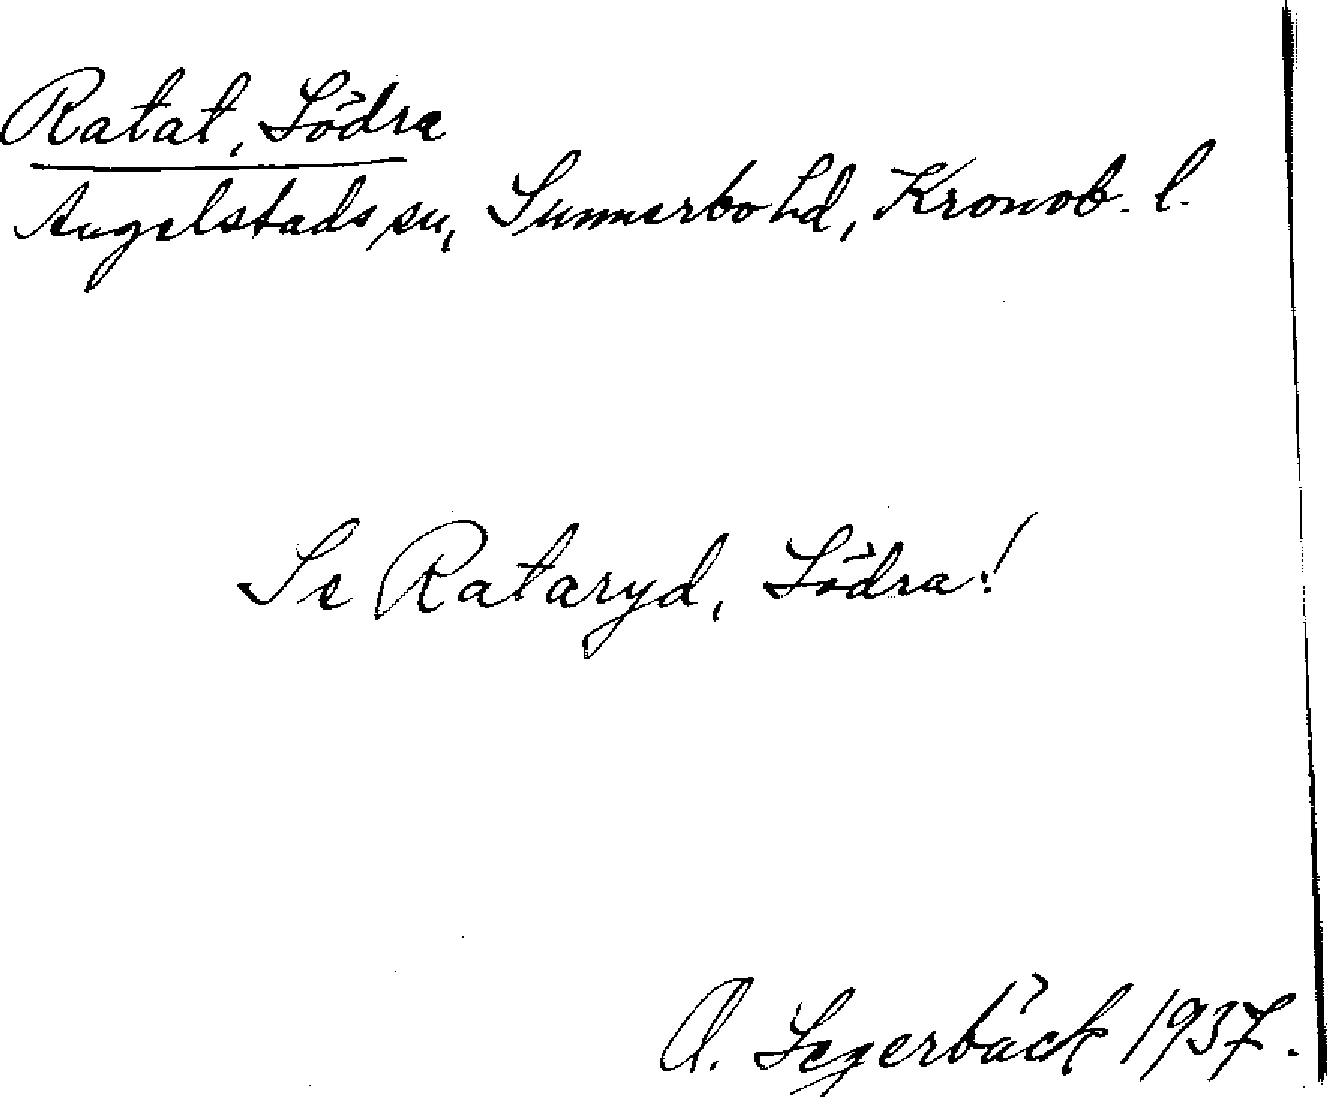 Ratat, Södra
Angelstads sn, Sunnerbo hd, Kronob. l.
Se Rataryd, Södra!
O. Segerbäck 1937.